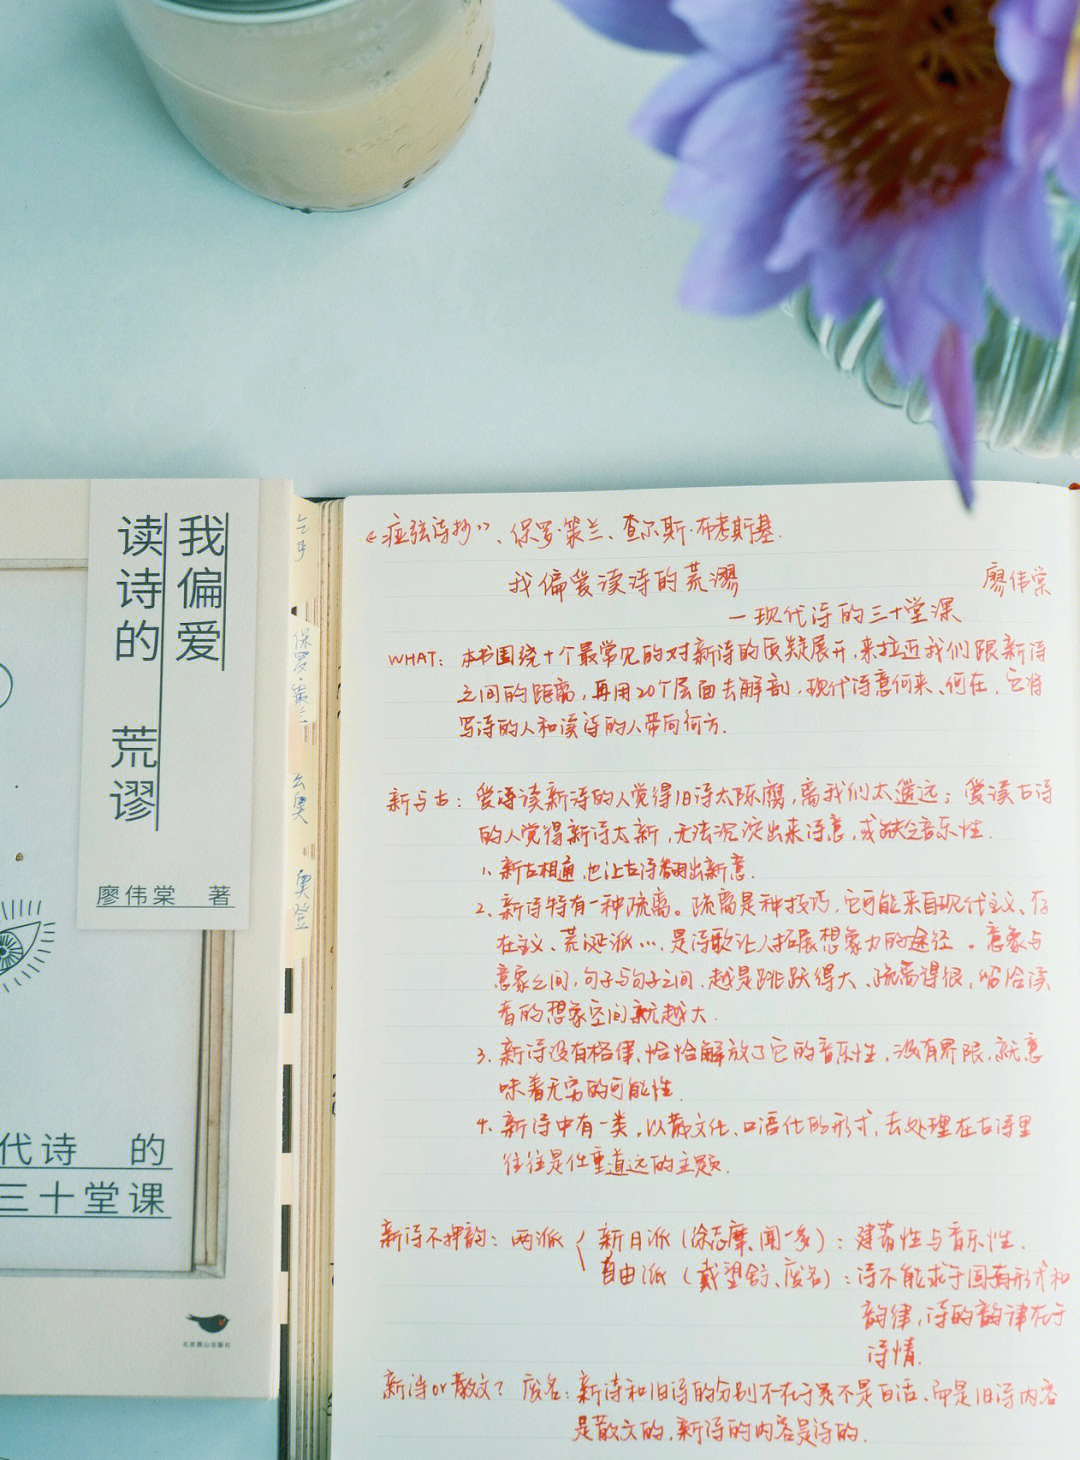 我偏爱
读诗的 荒谬
廖伟棠 著
代诗 的
三十堂课
北京燕山出版社
保罗·策兰
奥登
《症弦诗抄》、保罗·策兰、查尔斯·布考斯基.
我偏爱读诗的荒谬 廖伟棠
—现代诗的三十堂课
WHAT: 本书围绕十个最常见的对新诗的质疑展开,来拉近我们跟新诗
之间的距离,再用20个层面去解剖,现代诗意何来、何在,它将
写诗的人和读诗的人带向何方.
新与古: 爱读新诗的人觉得旧诗太陈腐,离我们太遥远; 爱读古诗
的人觉得新诗太新,无法沉淀出来诗意,或缺乏音乐性.
1. 新古相通,也让古诗翻出新意.
2. 新诗特有一种疏离。疏离是种技巧,它可能来自现代主义、存
在主义、荒诞派…,是诗歌让人拓展想象力的途径。意象与
意象之间,句子与句子之间,越是跳跃得大、疏离得很,留给读
者的想象空间就越大.
3. 新诗没有格律,恰恰解放了它的音乐性,没有界限,就意
味着无穷的可能性.
4. 新诗中有一类,以散文化、口语化的形式,去处理在古诗里
往往是任重道远的主题.
新诗不押韵: 两派 { 新月派(徐志摩、闻一多): 建筑性与音乐性.
自由派(戴望舒、废名): 诗不能求于固有形式和
韵律,诗的韵律在于
诗情.
新诗or散文? 废名: 新诗和旧诗的分别不在于是不是白话,而是旧诗内容
是散文的,新诗的内容是诗的.